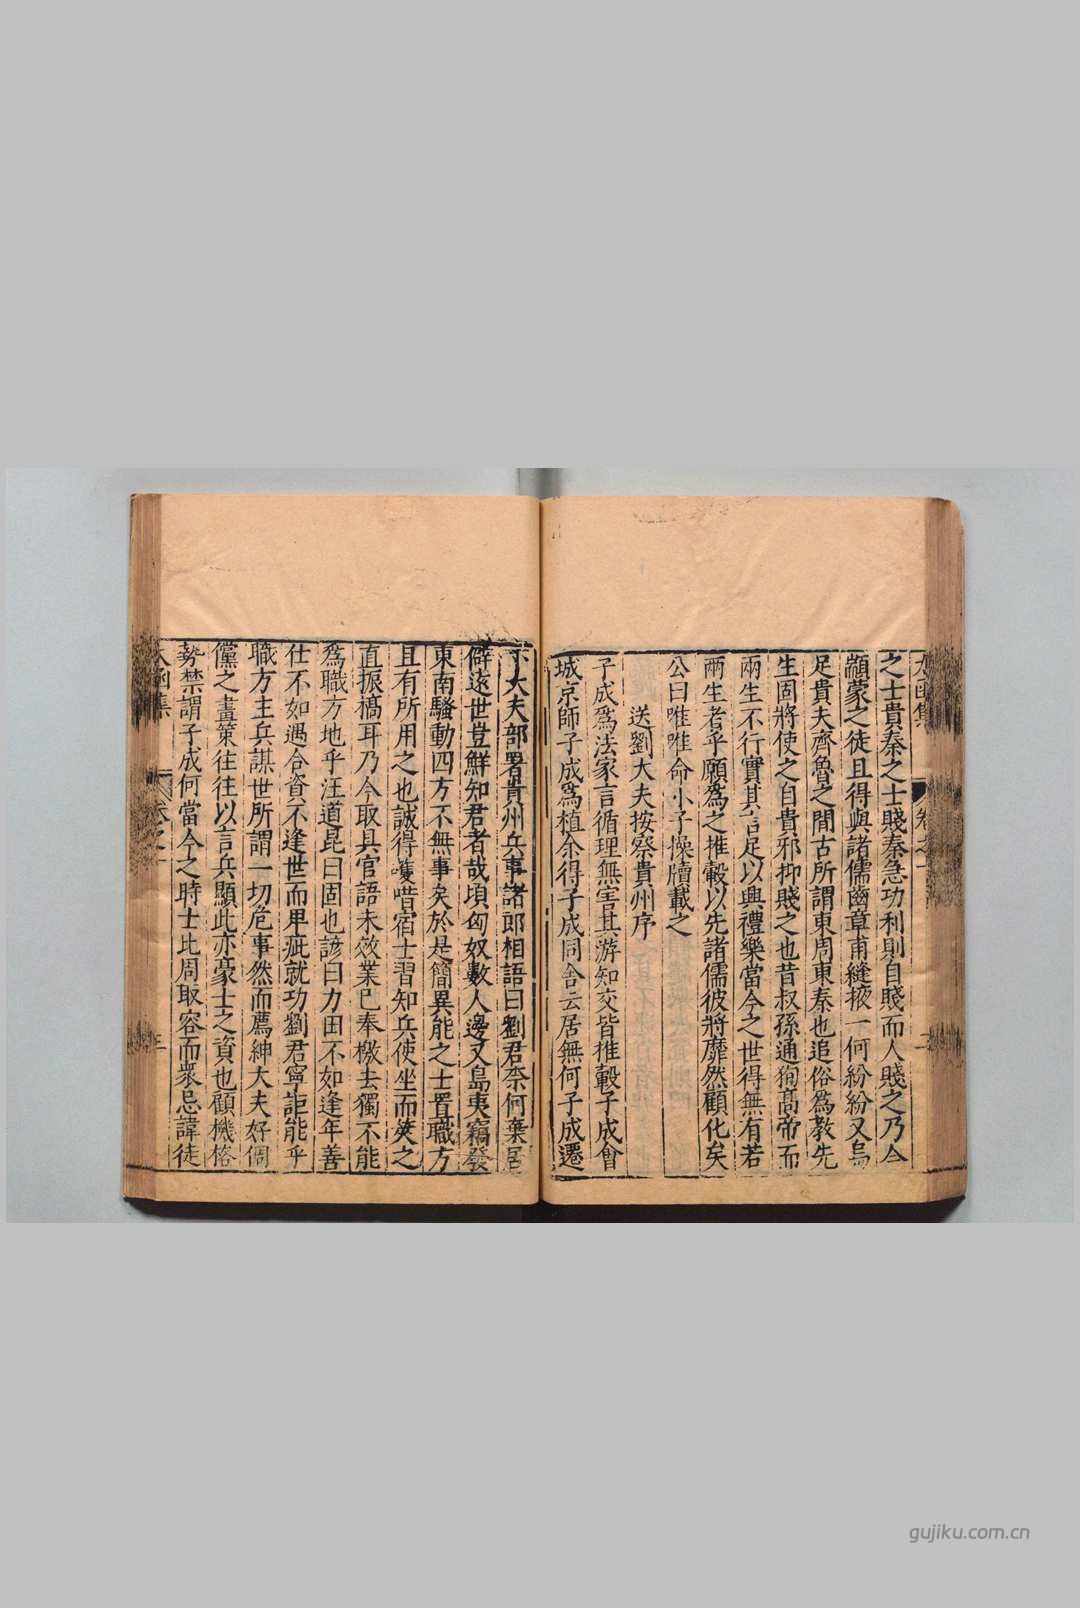 太函集
卷之一
二
之士貴秦之士賤秦急功利則自賤而人賤之乃今
顓蒙之徒且得與諸儒齒章甫縫掖一何紛紛又烏
足貴夫齊魯之間古所謂東周東秦也追俗為教先
生固將使之自貴邪抑賤之也昔叔孫通狥高帝而
兩生不行實其言足以興禮樂當今之世得無有若
兩生者乎願為之推轂以先諸儒彼將靡然顧化矣
公曰唯唯命小子操牘載之
送劉大夫按察貴州序
子成為法家言循理無害其游知交皆推轂子成會
城京師子成為植余得子成同舍云居無何子成遷
下大夫部署肯州兵事諸郎相語曰劉君奈何棄居
僻遠世豈鮮知君者哉頃匈奴數人邊又島夷竊發
東南騷動四方不無事矣於是簡異能之士置職方
且有所用之也誠得嚄唶宿士習知兵使坐而筴之
直振槁耳乃今取具官語未效業已奉檄去獨不能
為職方地乎汪道昆曰固也諺曰力田不如逢年善
仕不如遇合資不逢世而卑疵就功劉君寧詎能乎
職方主兵謀世所謂一切危事然而薦紳大夫好倜
儻之畫策往往以言兵顯此亦豪士之資也顧機格
勢禁謂子成何當今之時士比周取容而眾忌諱徒
太函集
卷之一
三
gujiku.com.cn